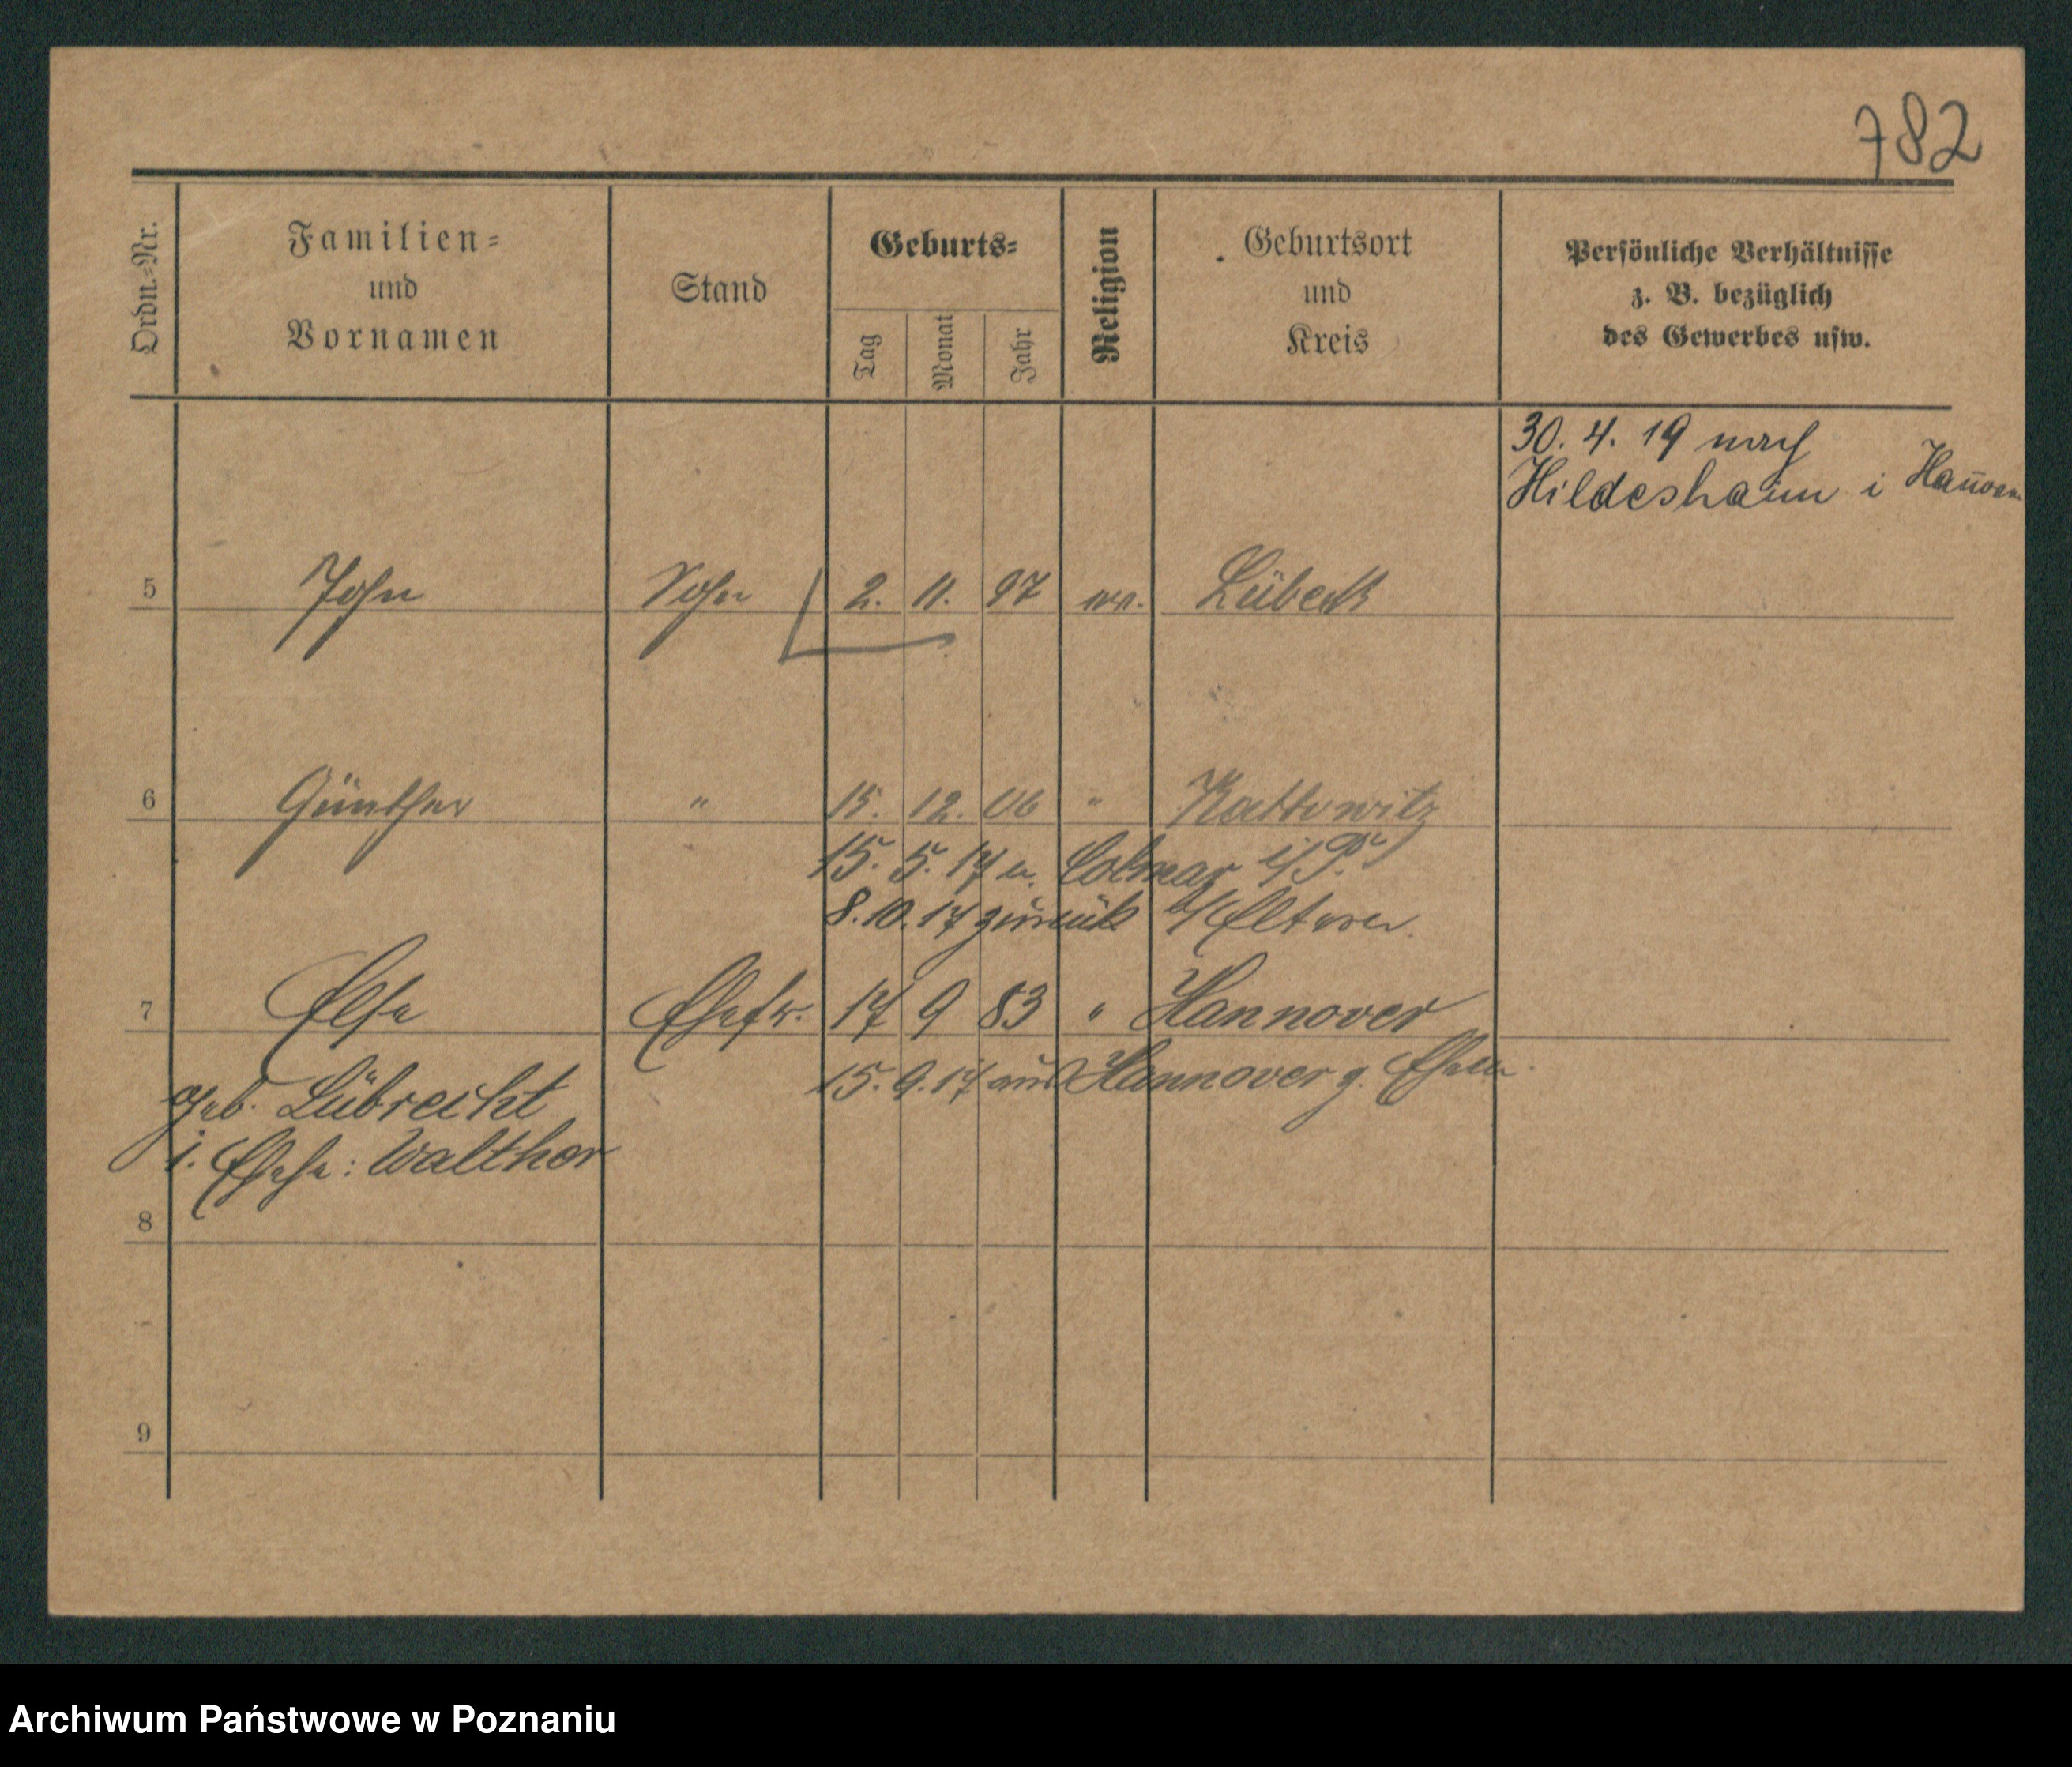 782
Ordn.-Nr.
Familien-
und
Vornamen
Stand
Geburts-
Tag
Monat
Jahr
Religion
Geburtsort
und
Kreis
Persönliche Verhältnisse
z. B. bezüglich
des Gewerbes usw.
30. 4. 19 nach
Hildesheim i Hannover
5 John Sohn 2. 11. 97 ev. Lübeck
6 Günther " 15. 12. 06 " Kattowitz
15. 5. 17 n. Colmar i/P.
8. 10. 17 zurück b/Eltern.
7 Else Ehefr. 17 9 83 " Hannover
15. 9. 17 aus Hannover z. Ehem.
geb. Lübrecht
1. Ehe: Walther
8
9
Archiwum Państwowe w Poznaniu